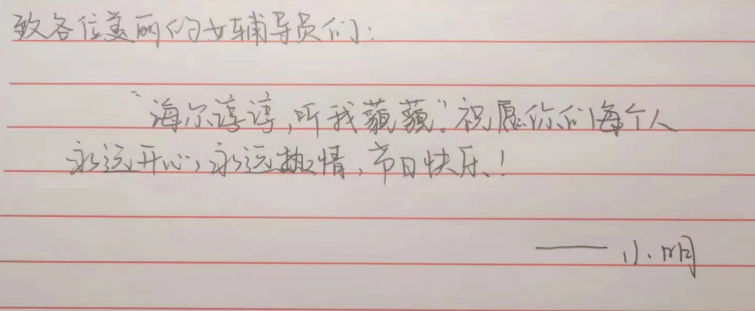 致各位美丽的女辅导员们:
“海尔谆谆,听我藐藐”。祝愿你们每个人
永远开心,永远热情,节日快乐!
——小明